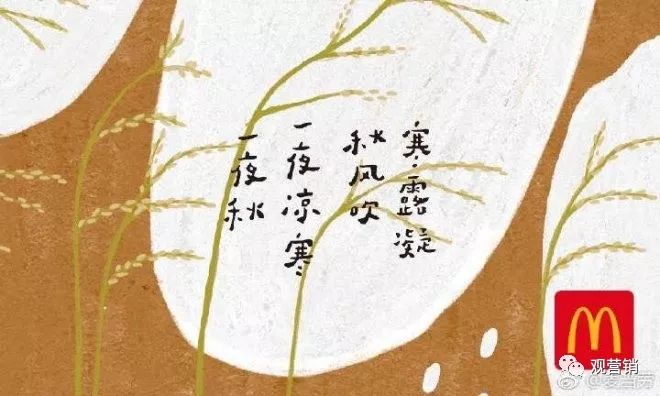 寒露凝
秋风吹
一夜凉寒
一夜秋
观营销
@麦当劳